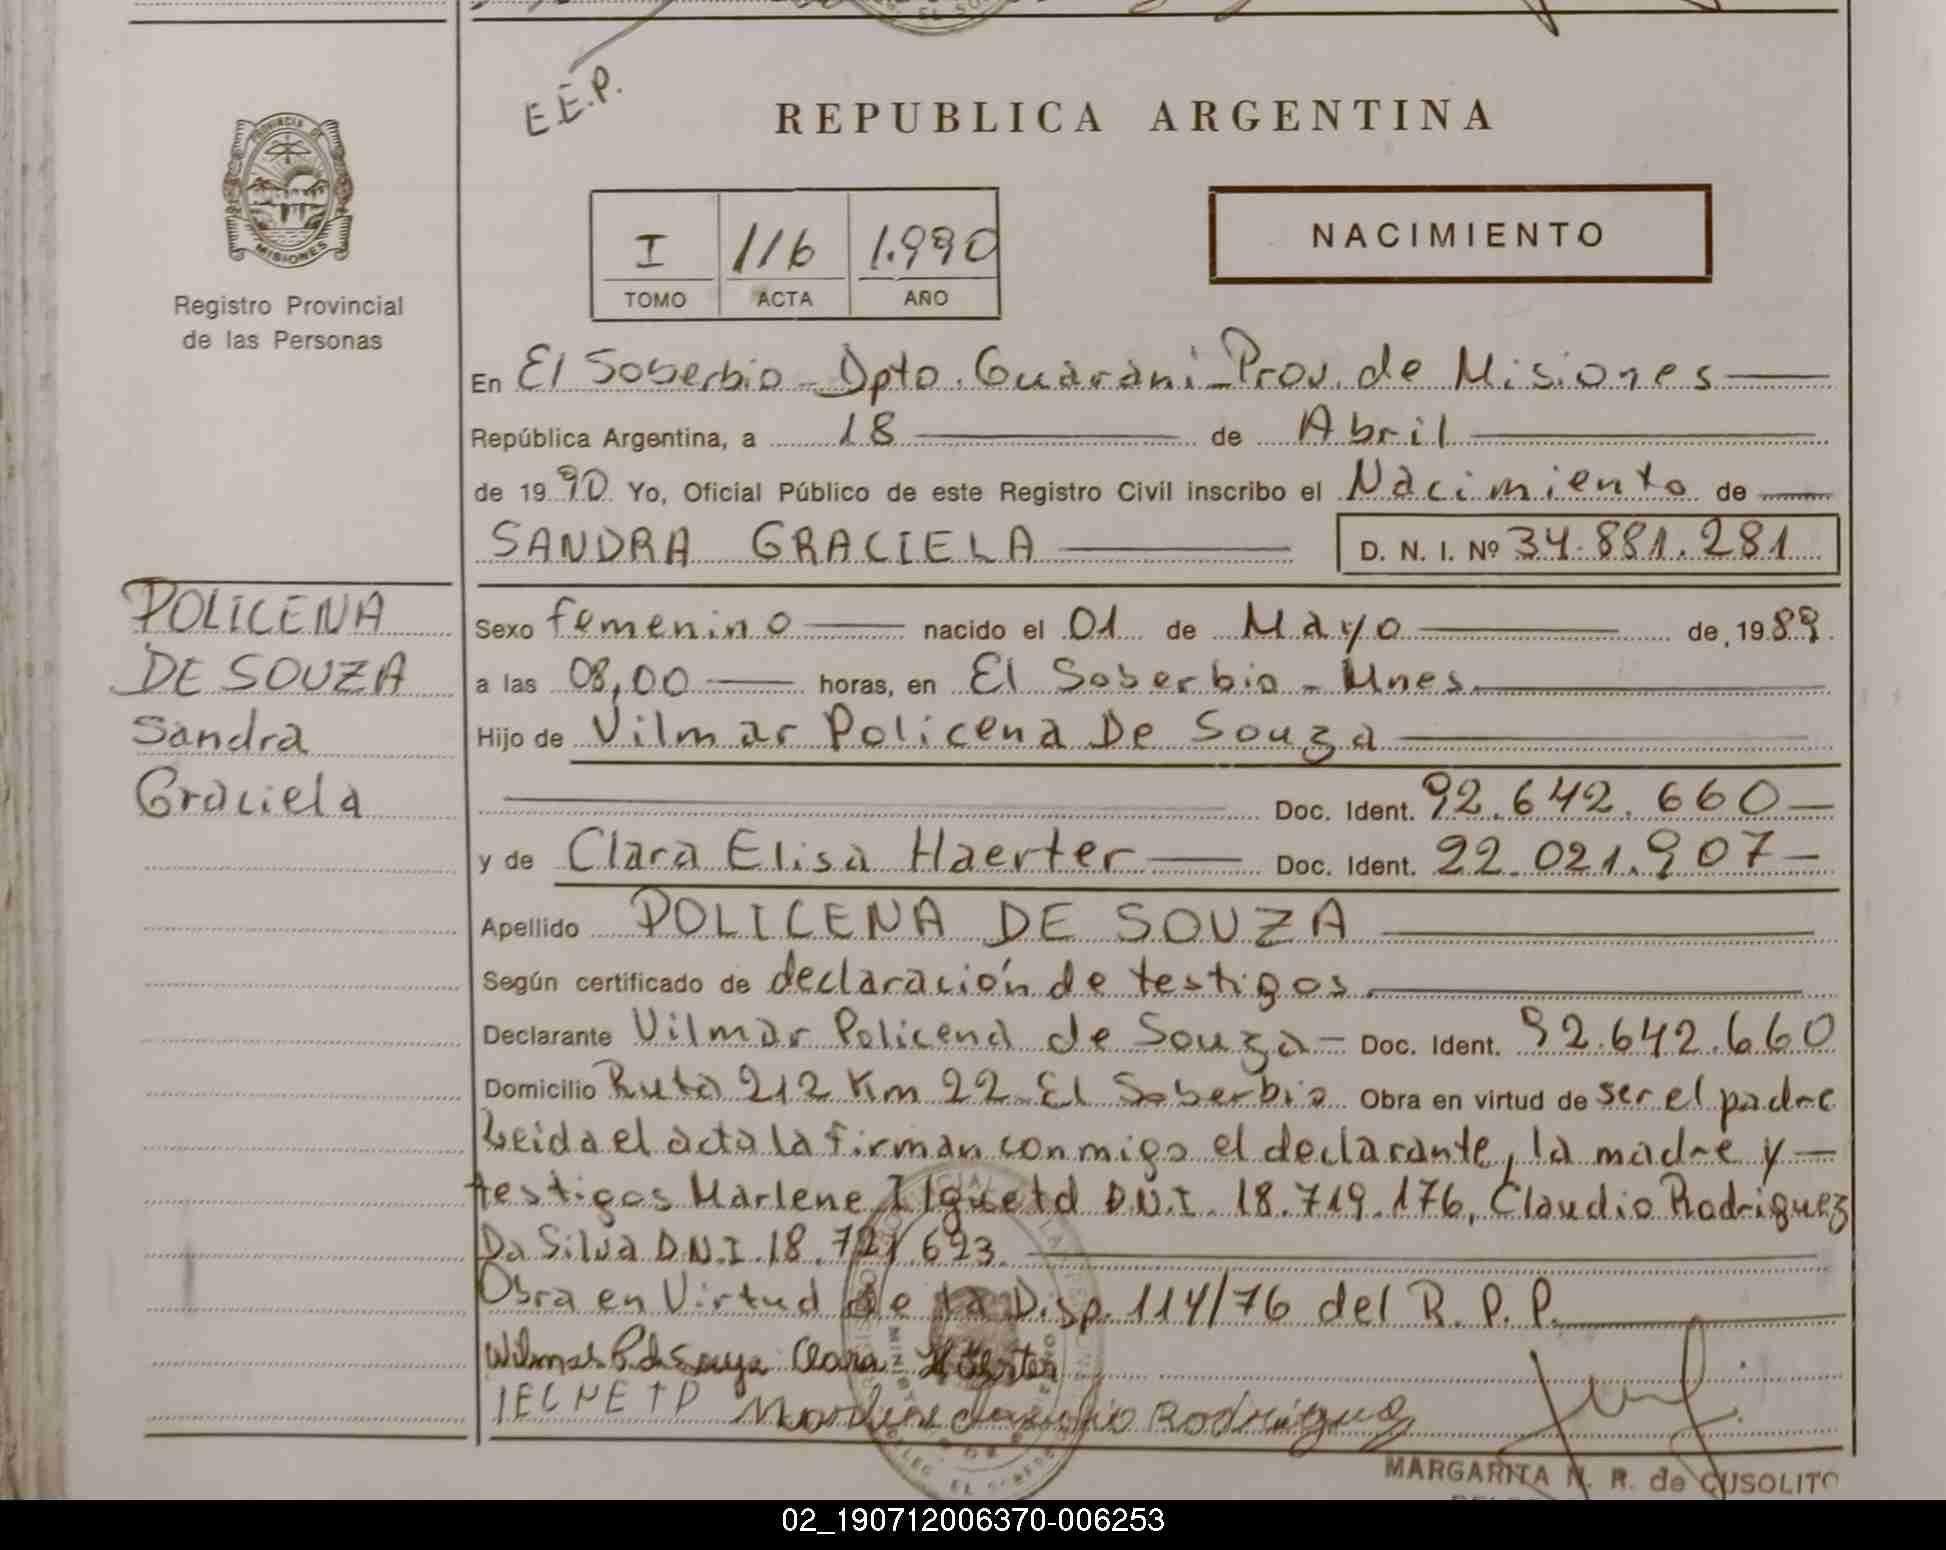 E.E.P.
REPUBLICA ARGENTINA
PROVINCIA DE
MISIONES
Registro Provincial
de las Personas
I 116 1.990
TOMO ACTA AÑO
NACIMIENTO
En El Soberbio - Dpto. Guaraní - Prov. de Misiones
República Argentina, a 18 de Abril
de 1990 Yo, Oficial Público de este Registro Civil inscribo el Nacimiento de
SANDRA GRACIELA D. N. I. Nº 34.881.281
POLICENA
DE SOUZA
Sandra
Graciela
Sexo femenino nacido el 01 de Mayo de 1989
a las 08,00 horas, en El Soberbio - Mnes.
Hijo de Vilmar Policena De Souza
Doc. Ident. 92.642.660
y de Clara Elisa Haerter Doc. Ident. 22.021.907
Apellido POLICENA DE SOUZA
Según certificado de declaración de testigos.
Declarante Vilmar Policena de Souza - Doc. Ident. 92.642.660
Domicilio Ruta 212 Km 22 El Soberbio Obra en virtud de ser el padre
Leida el acta la firman conmigo el declarante, la madre y
testigos Marlene Ilguetd D.N.I. 18.719.176, Claudio Rodriguez
Da Silva D.N.I. 18.721.623.
Obra en Virtud de la Disp. 114/76 del R.P.P.
Clara
Claudio Rodriguez
MARGARITA N. R. de CUSOLITO
02_190712006370-006253